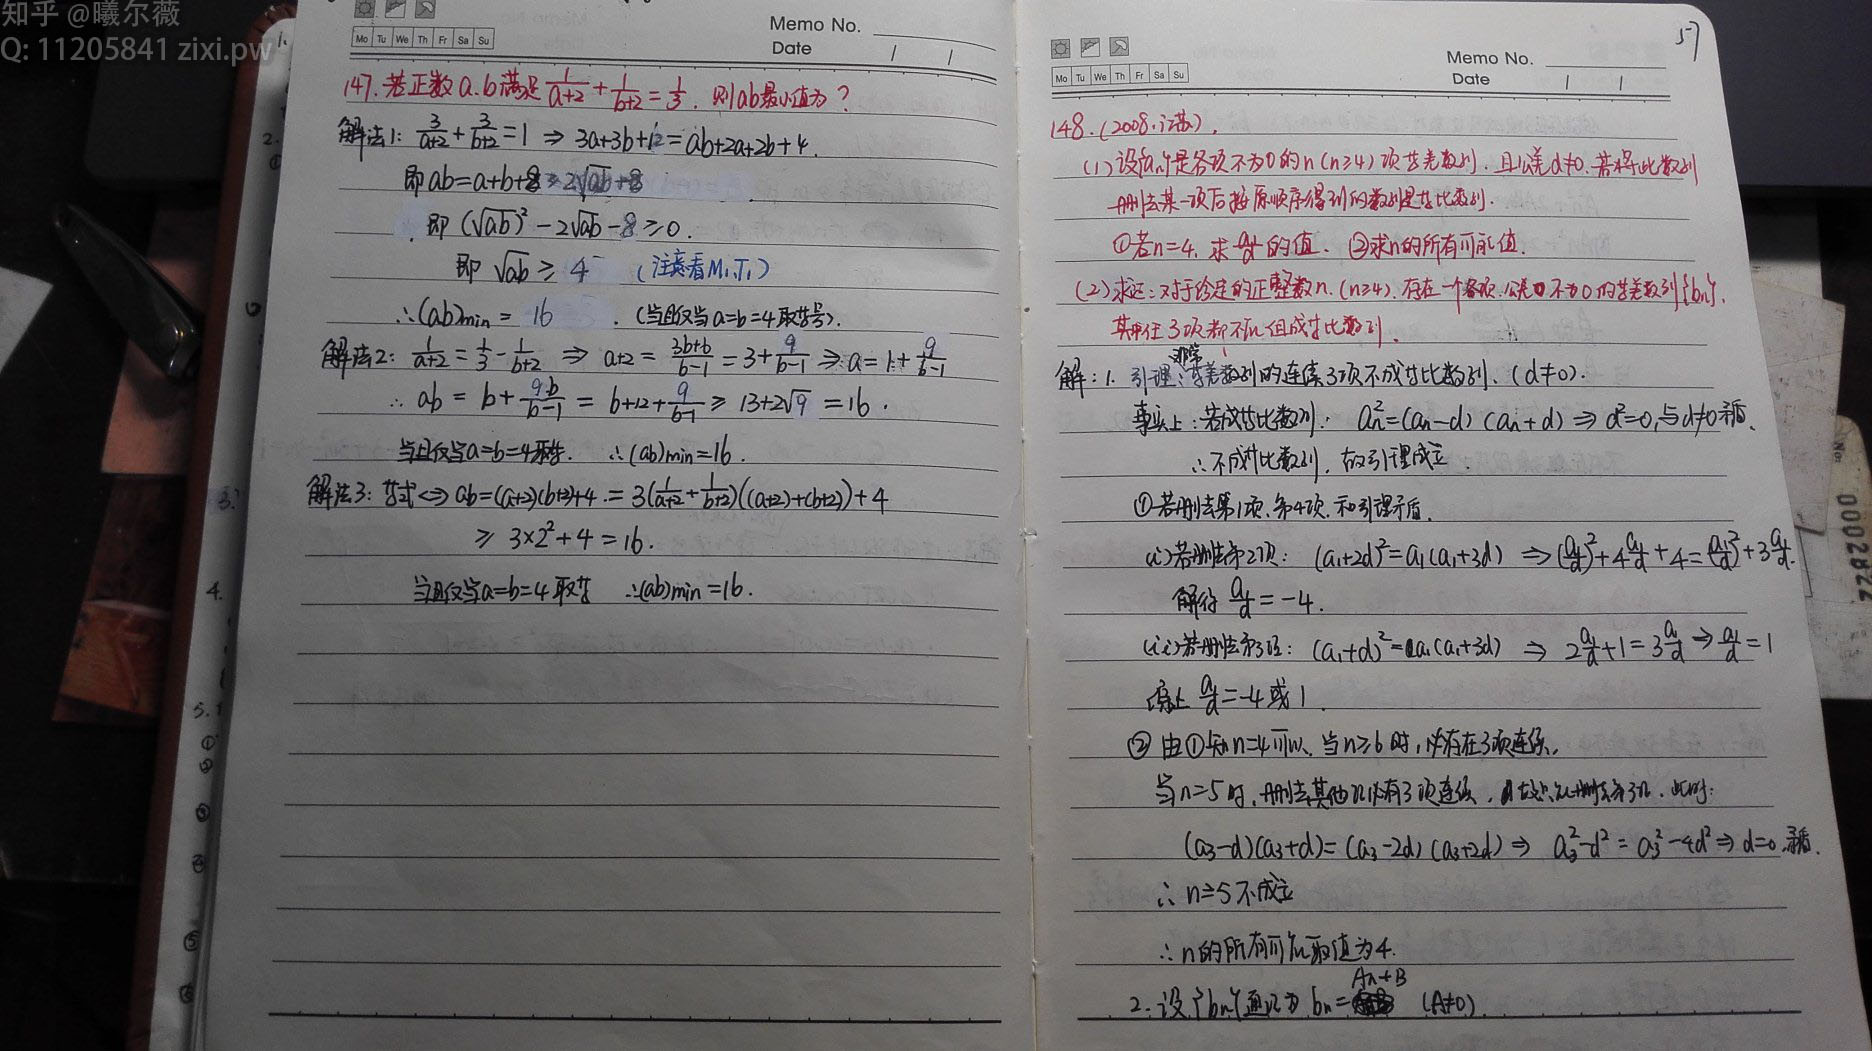 知乎 @曦尔薇
Q: 11205841 zixi.pw
Mo Tu We Th Fr Sa Su
Memo No.
Date / /
147. 若正数a.b满足 1/(a+2) + 1/(b+2) = 1/3. 则ab最小值为?
解法1: 3/(a+2) + 3/(b+2) = 1 ⇒ 3a+3b+12 = ab+2a+2b+4.
即 ab = a+b+8 ≥ 2√ab+8
即 (√ab)² - 2√ab - 8 ≥ 0.
即 √ab ≥ 4 (注意看M.T.)
∴(ab)min = 16 . (当且仅当a=b=4取等号).
解法2: 1/(a+2) = 1/3 - 1/(b+2) ⇒ a+2 = (3b+6)/(b-1) = 3 + 9/(b-1) ⇒ a = 1 + 9/(b-1)
∴ ab = b + 9b/(b-1) = b+12+ 9/(b-1) ≥ 13+2√9 = 16 .
当且仅当a=b=4取等. ∴(ab)min=16.
解法3: 等式 ⇔ ab=(a+2)(b+2)+4 . = 3(1/(a+2) + 1/(b+2))((a+2)+(b+2))+4
≥ 3×2²+4 = 16.
当且仅当a=b=4取等 ∴(ab)min=16.
57
Mo Tu We Th Fr Sa Su
Memo No.
Date / /
148. (2008.江苏).
(1) 设{an}是各项不为0的n (n≥4) 项等差数列. 且公差d≠0. 若将此数列
删去某一项后按原顺序得到的数列是等比数列.
①若n=4. 求 a₁/d 的值. ②求n的所有可能值.
(2) 求证: 对于给定的正整数n. (n≥4). 存在一个各项.公差不为0的等差数列{bn}.
其中任3项都不能组成等比数列.
解: 1. 引理: 非常等差数列的连续3项不成等比数列. (d≠0).
事实上: 若成等比数列: an² = (an-d) (an+d) ⇒ d²=0, 与d≠0矛盾.
∴不成等比数列, 故引理成立.
①若删去第1项.第4项. 和引理矛盾.
(i) 若删去第2项: (a₁+2d)² = a₁(a₁+3d) ⇒ (a₁/d)² + 4a₁/d + 4 = (a₁/d)² + 3a₁/d.
解得 a₁/d = -4.
(ii) 若删去第3项: (a₁+d)² = a₁(a₁+3d) ⇒ 2a₁/d + 1 = 3a₁/d ⇒ a₁/d = 1
综上 a₁/d = -4 或 1.
② 由①知n=4可以. 当n≥6时, 必存在3项连续.
当n=5时, 删去其他项必有3项连续, 故只能删去第3项. 此时:
(a₃-d)(a₃+d) = (a₃-2d)(a₃+2d) ⇒ a₃²-d² = a₃²-4d² ⇒ d=0.矛盾.
∴ n=5不成立
∴n的所有可能取值为4.
2. 设{bn}通项为 bn = An+B (A≠0).
No:
0002822